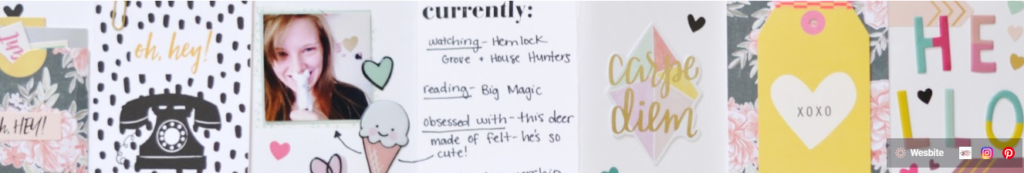 oh, HEY!
oh, hey!
currently:
watching - Hemlock
Grove + House Hunters
reading - Big Magic
obsessed with - this deer
made of felt - he's so
cute!
carpe
diem
XOXO
HE
LLO
Wesbite